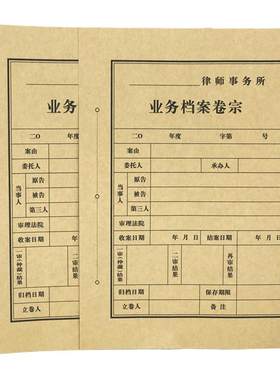 律师事务所
业务档案卷宗
二〇 年度 字第 号
案由
委托人 承办人
当事人
原告
被告
第三人
审理法院
收案日期 年 月 日 结案日期 年 月 日
一审(仲裁)结果 二审结果 再审结果
归档日期 保存期限
立卷人 备注
业务档
二〇 年度
案由
委托人
当事人
原告
被告
第三人
审理法院
收案日期
一审(仲裁)结果
归档日期
立卷人